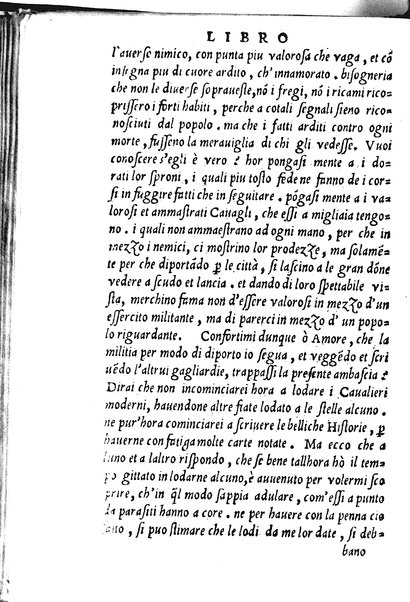 LIBRO
l'auerso nimico, con punta piu valorosa che vaga, et cō
insegna piu di cuore ardito, ch'innamorato. bisogneria
che non le diuerse soprauesle, nō i fregi, nō i ricami rico-
prissero i forti habiti, perche a cotali segnali sieno rico-
nosciuti dal popolo. ma che i fatti arditi contro ogni
morte, fusseno la merauiglia di chi gli vedesse. Vuoi
conoscere s'egli è vero? hor pongasi mente a i do-
rati lor sproni, i quali piu tosto fede ne fanno de i cor-
si in fuggire fatti che in seguitare. pōgasi mente a i va-
lorosi et ammastrati Cauagli, che essi a migliaia tengo-
no. i quali non ammaestrano ad ogni mano, per che in
mezzo i nemici, ci mostrino lor prodezze, ma solamē-
te per che diportādo ꝑ le città, si lascino a le gran dōne
vedere a scudo et lancia. et dando di loro spettabile vi-
sta, merchino fama non d'essere valorosi in mezzo d'un
essercito militante, ma di parerci in mezzo d'un popo-
lo riguardante. Confortimi dunque ò Amore, che la
militia per modo di diporto io segua, et veggēdo et scri
uēdo l'altrui gagliardie, trappassi la presente ambascia?
Dirai che non incominciarei hora a lodare i Caualieri
moderni, hauendone altre fiate lodato a le stelle alcuno.
ne pur'hora cominciarei a scriuere le belliche Historie, ꝑ
hauerne con fatiga molte carte notate. Ma ecco che a
luno et a laltro rispondo, che se bene tallhora hò il tem-
po gittato in lodarne alcuno, è auuenuto per volermi sco
prire, ch'in q̄l modo sappia adulare, com'essi a punto
la parasiti hanno a core. ne per hauere con la penna cio
tato, si puo stimare che le lodi da me lor date, si deb-
bano